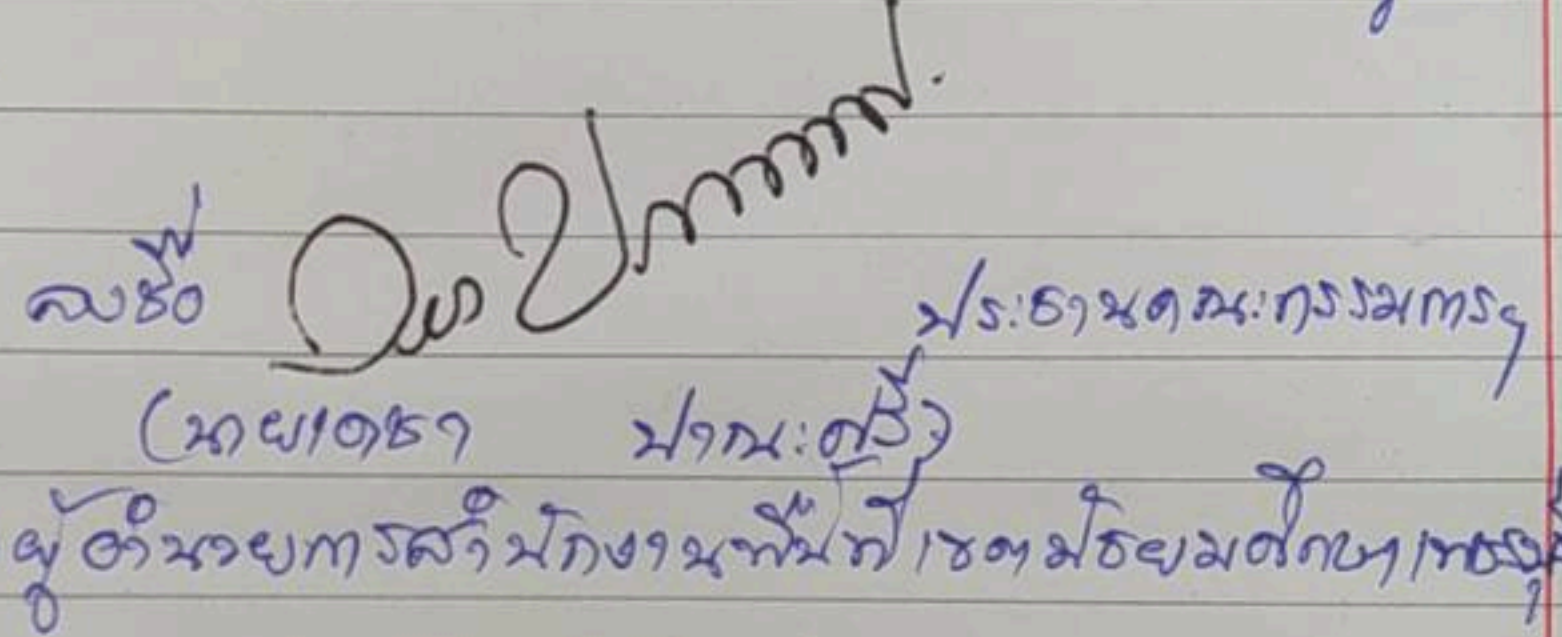 ลงชื่อ ประธานคณะกรรมการฯ
(นายเดชา ปาณะศรี)
ผู้อำนวยการสำนักงานพื้นที่เขตมัธยมศึกษา